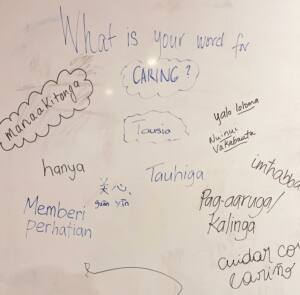 What is your word for
CARING?
manaakitanga
Tausia
yalo loloma
Nuinui
Vakabauta
hanya
关心
guān xīn
Tauhiga
imħabba
Memberi
perhatian
Pag-aaruga/
Kalinga
cuidar con
cariño